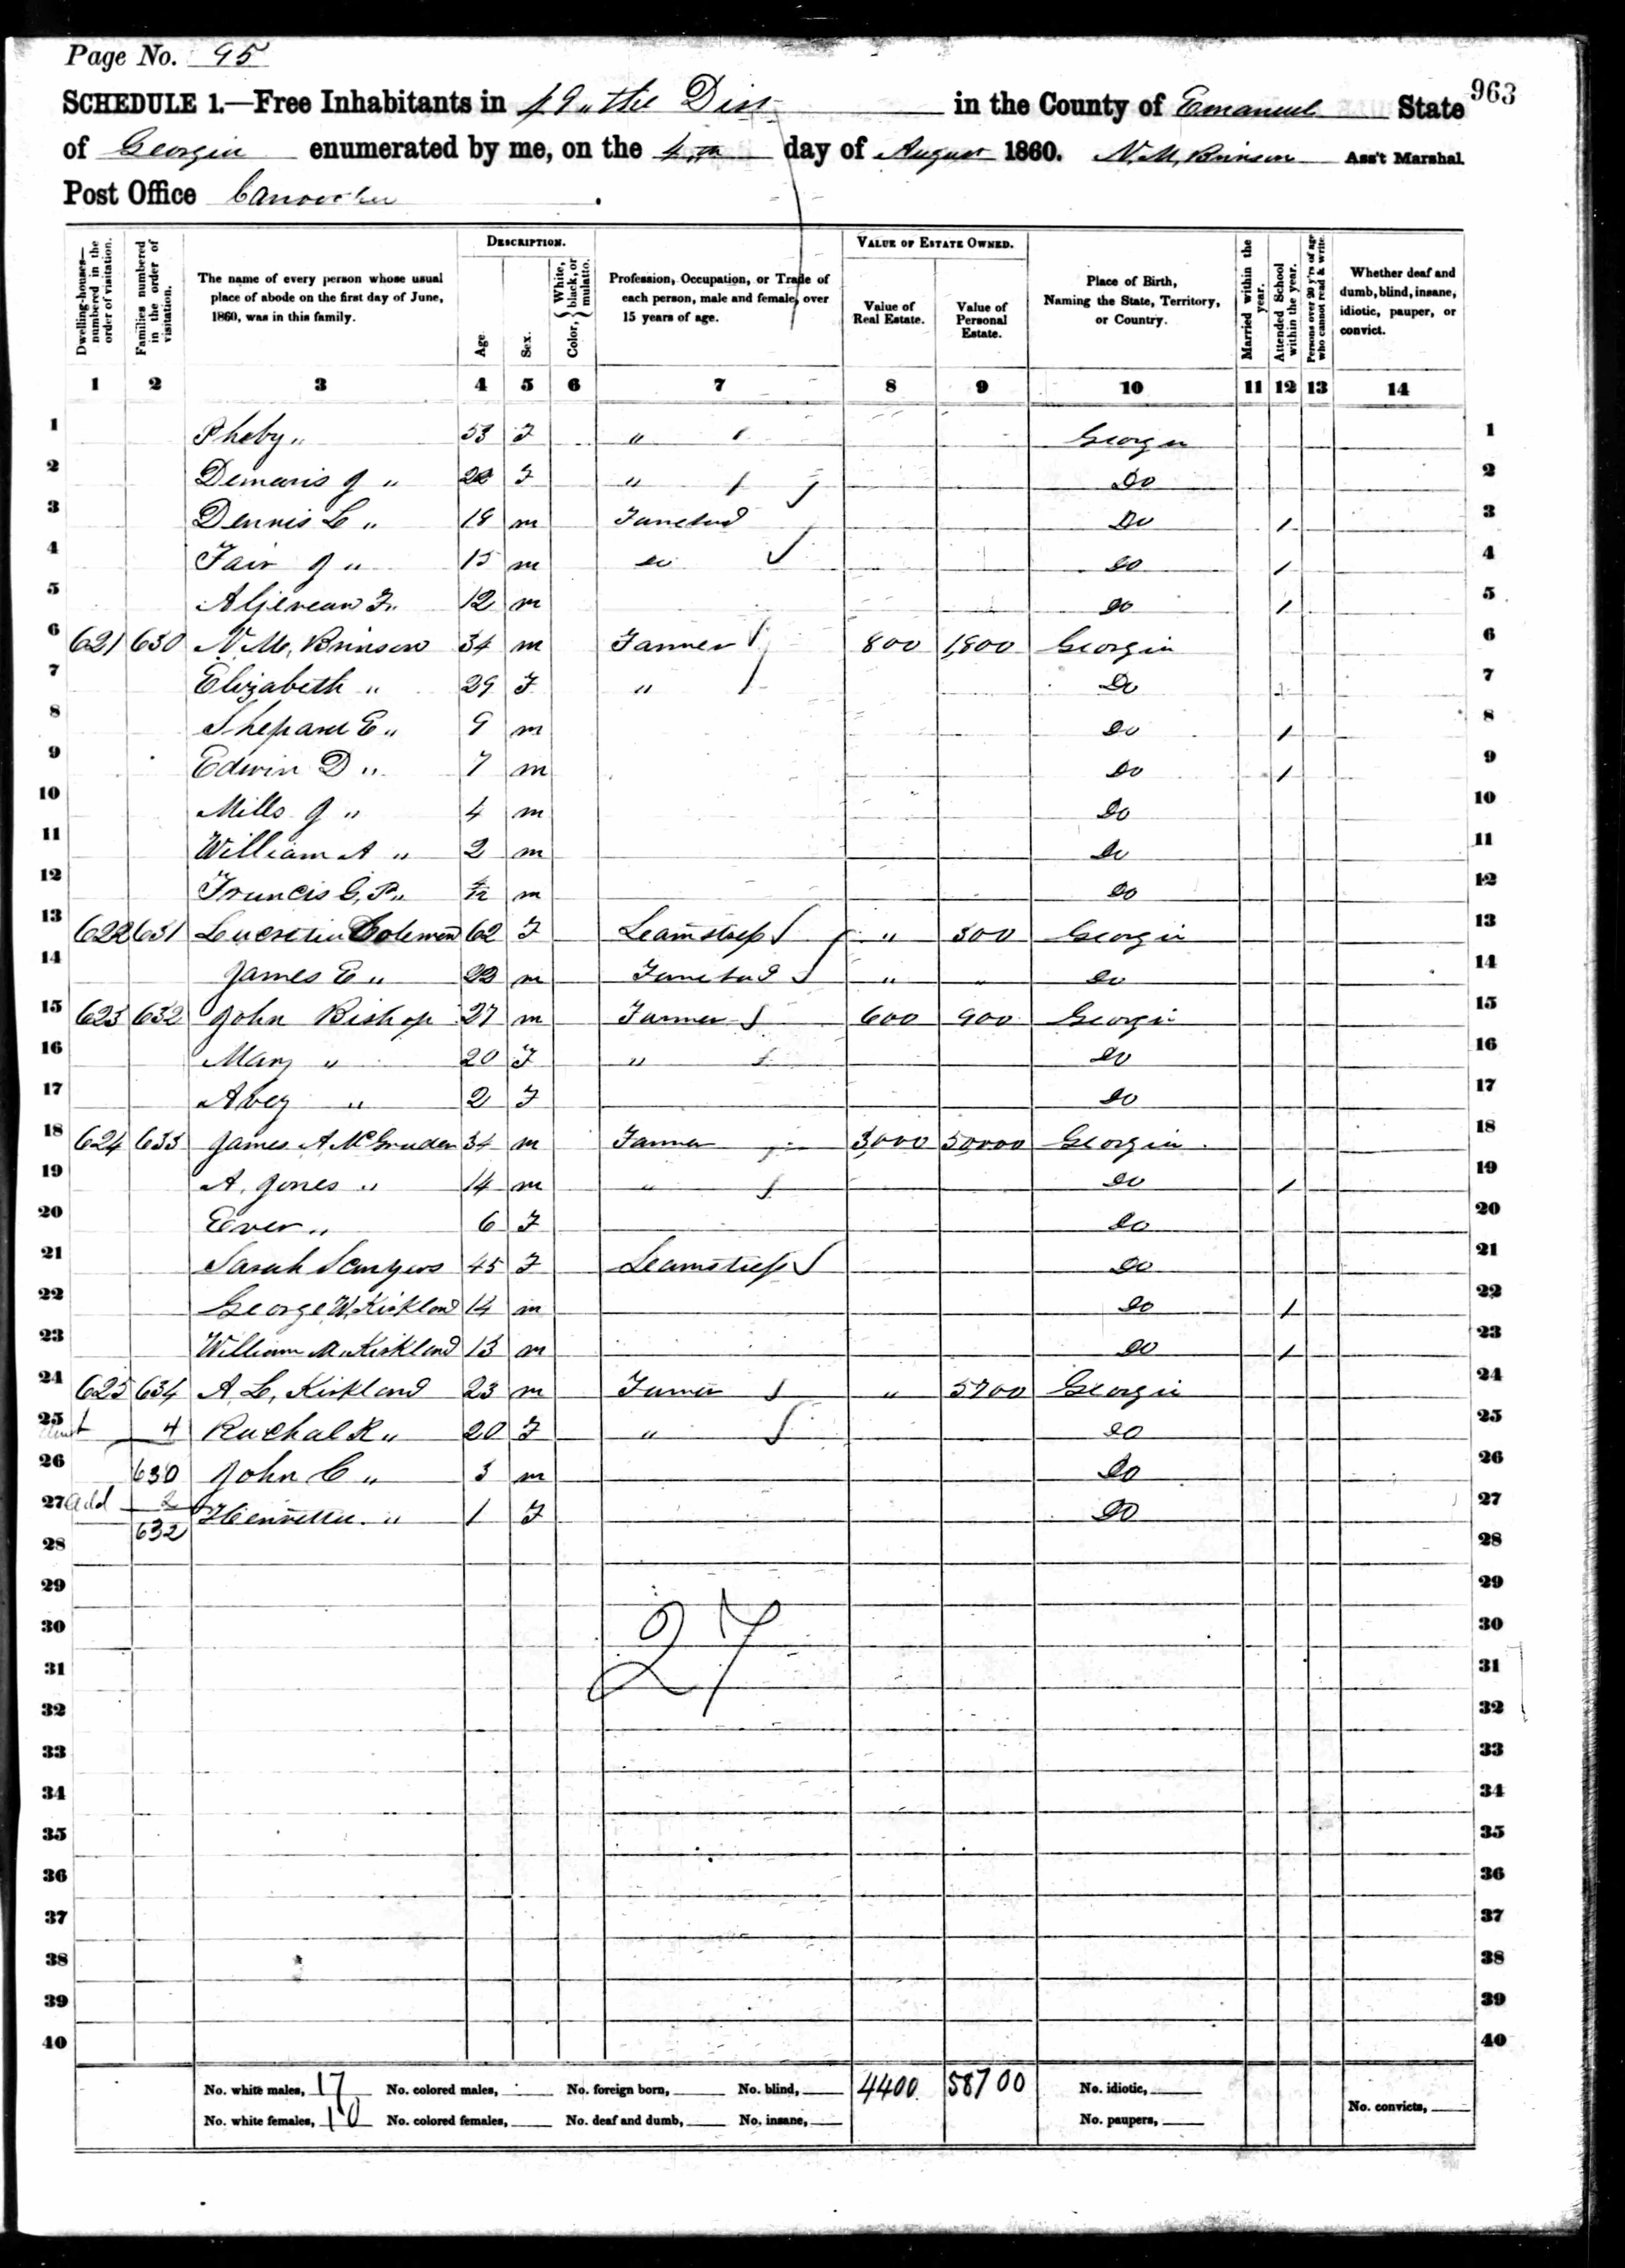 Page No. 95
963
SCHEDULE 1.—Free Inhabitants in 49..the Dist in the County of Emanuel State
of Georgia enumerated by me, on the 4th day of August 1860. N. M. Brinson Ass't Marshal.
Post Office Canoochee .
Dwelling-houses— numbered in the order of visitation.
Families numbered in the order of visitation.
The name of every person whose usual place of abode on the first day of June, 1860, was in this family.
DESCRIPTION.
Age
Sex.
Color, { White, black, or mulatto.
Profession, Occupation, or Trade of each person, male and female, over 15 years of age.
VALUE OF ESTATE OWNED.
Value of Real Estate.
Value of Personal Estate.
Place of Birth, Naming the State, Territory, or Country.
Married within the year.
Attended School within the year.
Persons over 20 y'rs of age who cannot read & write.
Whether deaf and dumb, blind, insane, idiotic, pauper, or convict.
1 2 3 4 5 6 7 8 9 10 11 12 13 14
1 Pheby " 53 F " Georgia 1
2 Demaris J " F " Do 2
3 Dennis L " 18 m Do / 3
4 Fair J " 15 m do Do / 4
5 F " 12 m Do / 5
6 621 630 N. M. Brinson 34 m Farmer 800 1,800 Georgia 6
7 Elizabeth " 29 F " Do 7
8 Shepard E " 9 m Do / 8
9 Edwin D " 7 m Do / 9
10 Mills J " 4 m Do 10
11 William A " 2 m Do 11
12 Francis G. P " m Do 12
13 622 631 Lucretia Coleman 62 F Seamstress " 300 Georgia 13
14 James E " 22 m " " Do 14
15 623 632 John Bishop 27 m Farmer 600 900 Georgia 15
16 Mary " 20 F " Do 16
17 Avey " 2 F Do 17
18 624 633 James A McGruder 34 m Farmer 3,000 50,000 Georgia 18
19 A. Jones " 14 m " Do / 19
20 Ever " 6 F Do 20
21 Sarah 45 F Seamstress Do 21
22 George W. Kirkland 14 m Do / 22
23 William M. Kirkland 13 m Do / 23
24 625 634 A. L. Kirkland 23 m Farmer " 5700 Georgia 24
25 4 Rachal R " 20 F " Do 25
26 630 John C " 3 m Do 26
27 add 2 Henrettu " 1 F Do 27
28 632 28
29 29
30 27 30
31 31
32 32
33 33
34 34
35 35
36 36
37 37
38 38
39 39
40 40
No. white males, 17 No. colored males, No. foreign born, No. blind, 4400. 58700 No. idiotic,
No. white females, 10 No. colored females, No. deaf and dumb, No. insane, No. paupers, No. convicts,